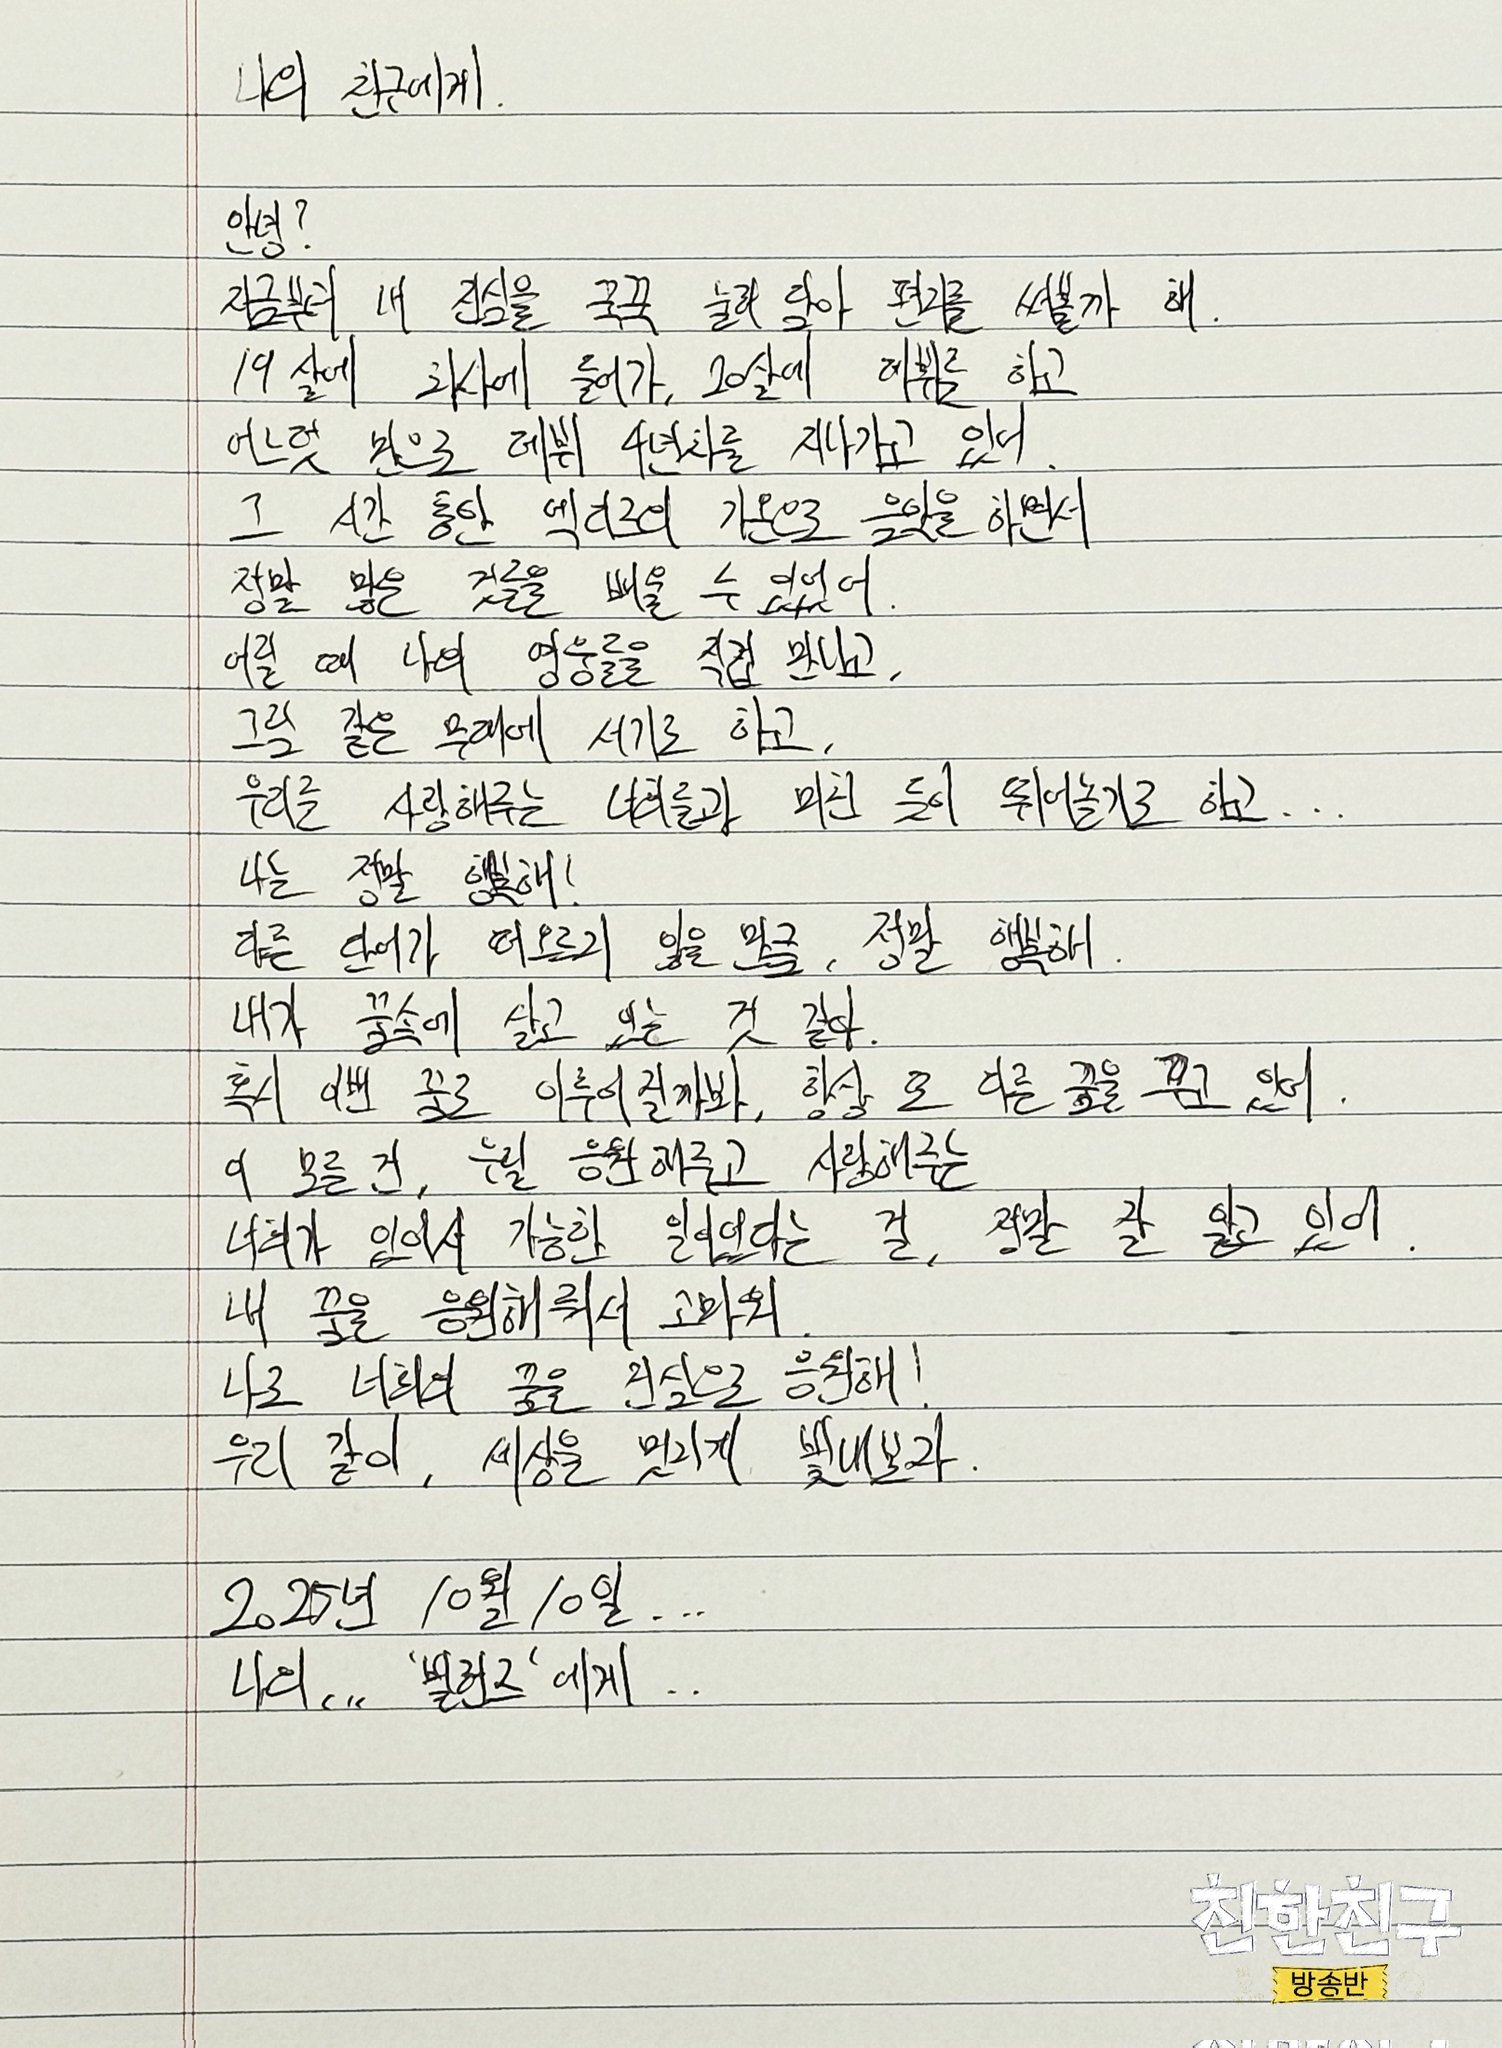 나의 친구에게.
안녕?
지금부터 내 진심을 꾹꾹 눌러 담아 편지를 써볼까 해.
19살에 회사에 들어가, 20살에 데뷔를 하고
어느덧 만으로 데뷔 4년차를 지나가고 있어.
그 시간 동안 엑디즈의 가온으로 음악을 하면서
정말 많은 것들을 배울 수 있었어.
어릴 때 나의 영웅들을 직접 만나고,
그런 같은 무대에 서기도 하고,
우리를 사랑해주는 너희들과 미친 듯이 뛰어놀기도 하고...
나는 정말 행복해!
다른 단어가 떠오르지 않을 만큼, 정말 행복해.
내가 꿈속에 살고 있는 것 같아.
혹시 이번 꿈도 이루어질까봐, 항상 또 다른 꿈을 꾸고 있어.
이 모든 건, 우릴 응원해주고 사랑해주는
너희가 있어서 가능한 일이었다는 걸, 정말 잘 알고 있어.
내 꿈을 응원해줘서 고마워.
나도 너희의 꿈을 진심으로 응원해!
우리 같이, 세상을 멋지게 빛내보자.
2025년 10월 10일...
나의... '빌런즈'에게..
친한친구
방송반